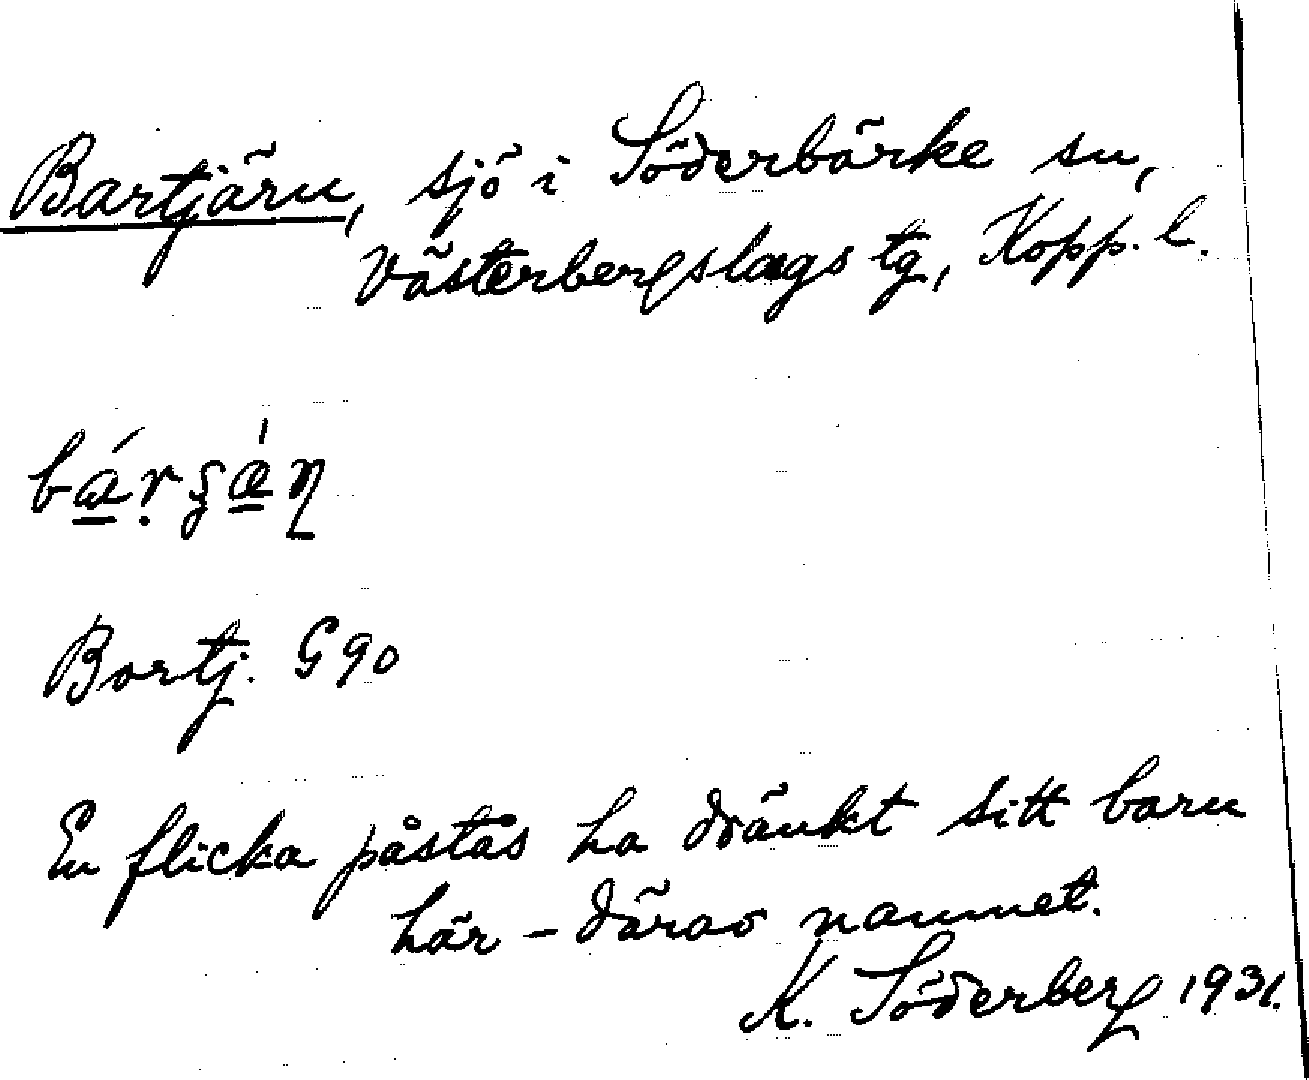 Bartjärn, sjö i Söderbärke sn,
Västerbergslags tg, Kopp. l.
Bortj. G 90
En flicka påstås ha dränkt sitt barn
här – därav namnet.
K. Söderberg 1931.